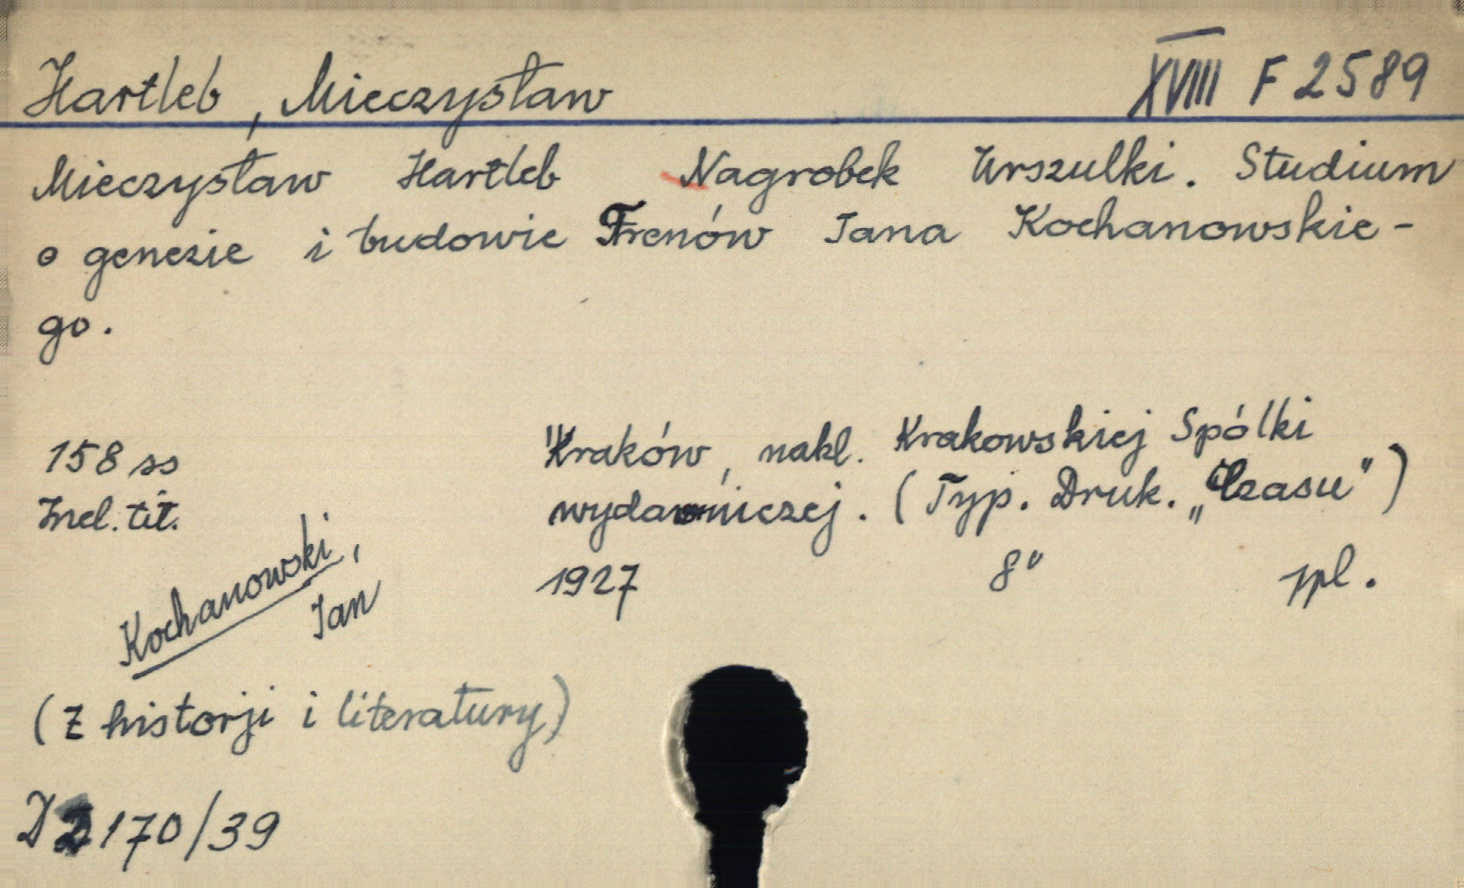 Hartleb, Mieczysław XVIII F 2589
Mieczysław Hartleb Nagrobek Urszulki. Studium
o genezie i budowie Trenów Jana Kochanowskie-
go.
158 ss Kraków, nakl. Krakowskiej Spólki
Incl. tit. wydawniczej. (Typ. Druk. „Czasu")
1927 8° ppl.
Kochanowski,
Jan
(Z historji i literatury)
D 2170/39